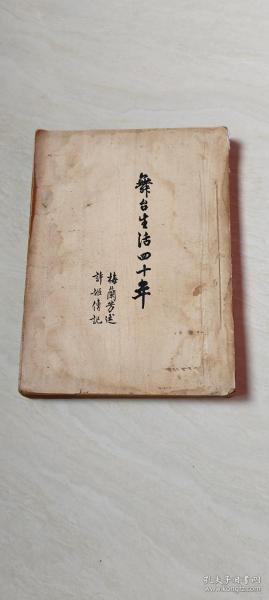 舞台生活四十年
梅蘭芳述
許姬傳記
孔夫子旧书网